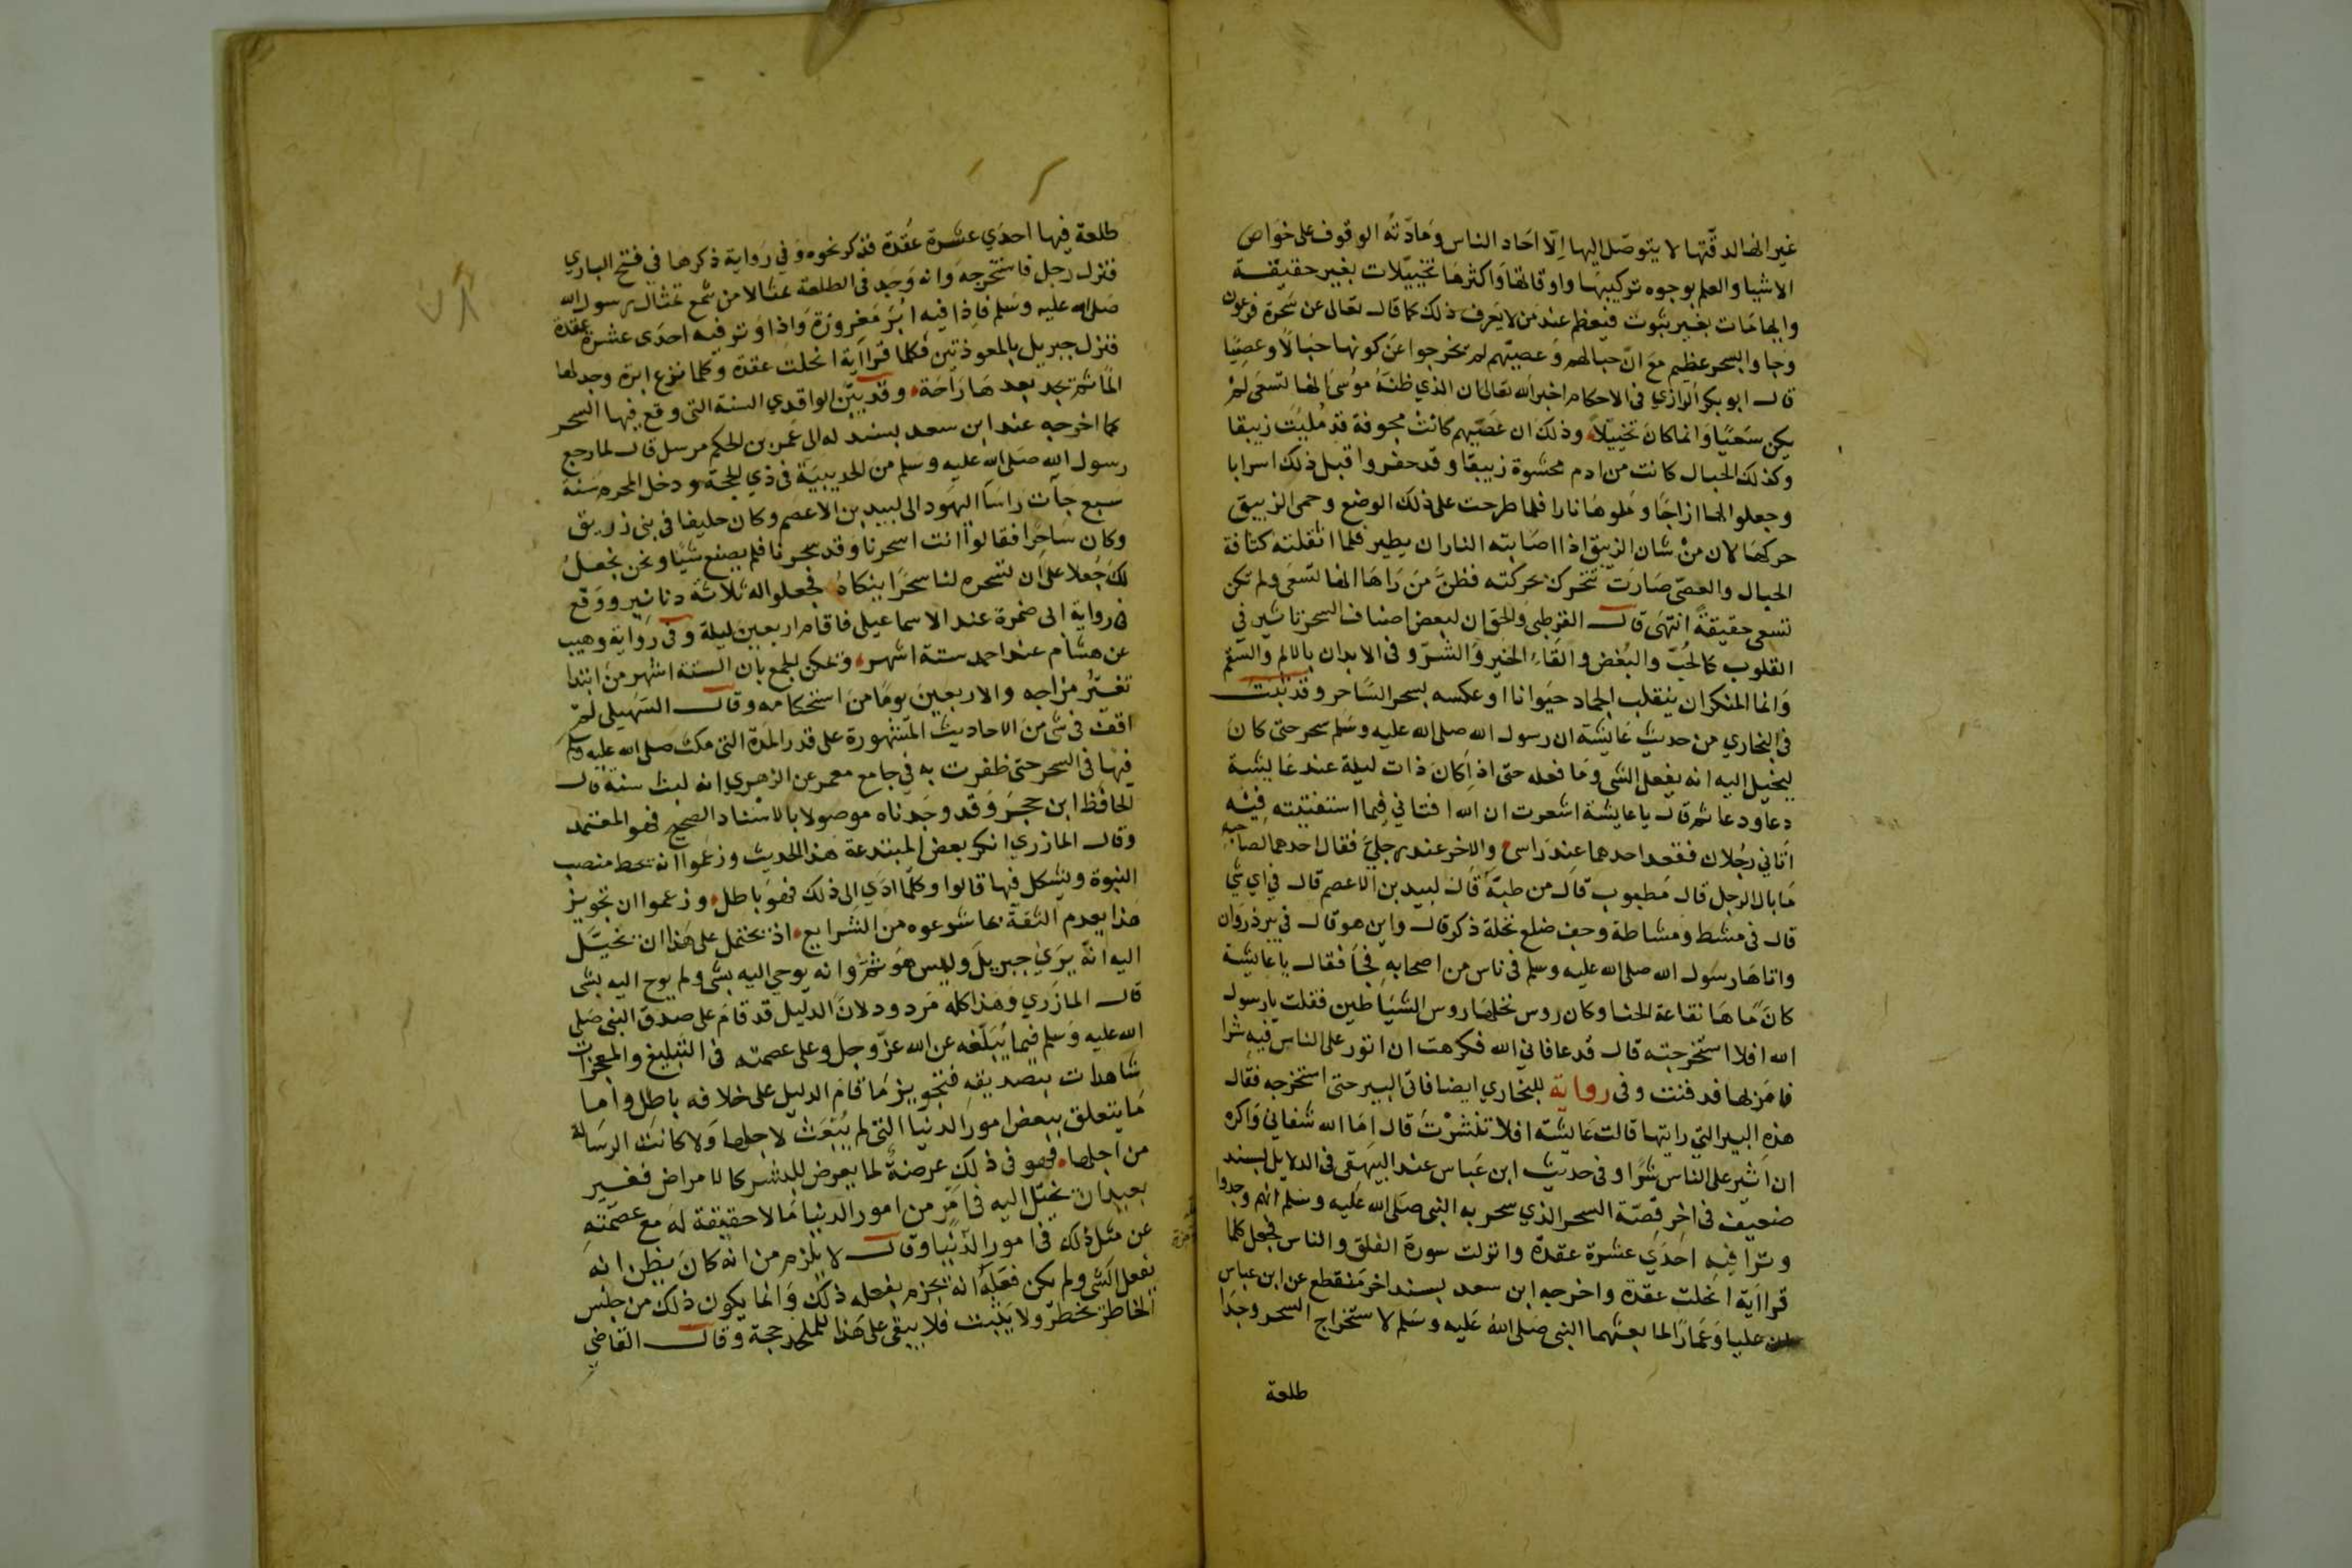 غير انها لدقتها لا يتوصّل اليها اِلّا احاد الناس ومَادّتهُ الوقوف على خوَاص
الاشيا والعلم بوجوه تركيبها واوقاتها وَاكثرهَا تخييلات بغير حقيقة
وايهامَات بغير ثبوت فيعظم عند مَن لا يَعرف ذلك كما قال تعَالى عن سَحرة فرعون
وَجاوا بسحر عظيم معَ انّ حبالهم وَعصيّهم لم تخرجوا عَن كونها حبَالاً وعصِيّا
قال ابو بكر الرازي فى الاحكام اخبر الله تعَالى ان الذي ظنّهُ مُوسَى انها تسعَى لم
يكن سَعيًا وَانما كانَ تخييلاً وذلك ان عَصّيهم كانت مجوفة قد مُليَت زيبقا
وكذلك الحبال كانت من ادم محشوة زيبقا وقد حفروا قبل ذلك اسرابا
وجعلوا لها ازاجًا وملوهَا نارا فلما طرحت على ذلك الوضع وحمى الزيبق
حركهَا لان منْ شان الزيبق اذا اصَابته النار ان يطير فلما اثقلته كثافة
الحبال والعصّى صَارَت تتحرك بحركته فظنّ مَن رَاهَا انها تسعَى ولم تكن
تسعى حقيقةً انتهَى قال القرطبى وَالحق ان لبعض اصناف السحر تاثير فى
القلوب كالحُبّ والبُغض والقَاء الخير وَالشّرّ و فى الابدان بالالم والسّقم
وَانما المنكر ان ينقلب الجماد حيَوانا او عكسه بسحر السَّاحر وقد ثبت
فى البخاري من حديث عَايشَة ان رسول الله صلى الله عليه وسَلم سحر حتى كانَ
ليخيّل اليه انه يفعل الشى ومَا فعله حتى اذا كانَ ذات ليلة عند عَايشَة
دعا ودعا ثم قال يا عايشة اشعرت ان الله افتاني فيما استفتيته فيه
اتاني رجُلان فقعد احدهما عندَ راسى والاخر عند رجليَّ فقال احدهما لصاحبه
مَا بال الرجل قال مَطبوب قال من طبّهُ قال لبيد بن الاعصم قال في أي شي
قال فى مشط ومشاطة وجف ضلع نخلة ذكر قال واين هو قال في بير ذروان
واتاهَا رسول الله صلى الله عليه وسلم فى ناس من اصحابه فجَأ فقال يا عايشة
كانّ مَاهَا نقاعة الحنا وكان روس نخلهَا روس الشيَاطين فقلت يا رسول
الله افلا استخرجته قال قد عافاني الله فكرهت ان اثور على الناس فيه شرا
فامَر بها فدفنت وفى رواية للبخاري ايضا فاتى البير حتى استخرجه فقال
هذه البير التي رايتها قالت عَايشة افلا تنَشرْت قال امَا الله شفاني وَاكره
ان اثير على الناس شرًّا وفى حديث ابن عَباس عند البيهقى فى الدلايل بسند
ضعيف فى اخر قصّة السحر الذي سحر به النبى صَلى الله عَليه وسَلم انهم وجدوا
وترًا فيه احدَي عشرة عقدة وانزلت سورة الفلق والناس فجعل كلما
قرا اَية انحلت عقدة واخرجه ابن سعد بسند اخر مَنقطع عن ابن عباس
ان عليا وَعَمارًا لما بعثهما النبى صَلى الله عَليه وسَلم لاستخراج السحر وجدَا
طلعة
طلعة فيها احدَي عشرة عُقدة فذكر نحوه وَفي رَواية ذكرها في فتح الباري
فنزل رجل فاستخرجه وَانه وَجَد فى الطلعة تمثالا من شمع تمثال رسول الله
صَلى الله عليه وسَلم فاِذا فيه ابَر مَغروزَة وَاذا وَتر فيه احدَى عشرة عقدة
فنزل جبريل بالمعوذتين فكلما قرا اَية انحلت عقدة وَكلما نزع ابرة وجد لها
المًا ثم تجد بعد هَا رَاحَة وقد بيّن الواقدي السنة التى وقع فيها السحر
كما اخرجه عند ابن سعد بسند له الى عَمرَ بن الحكم مرسل قال لما رجع
رسول الله صَلى الله عليه وسَلم منَ الحديبيَة فى ذي الحجة ودخل المحرم سَنة
سبع جَآت رَاسَا اليهَود الى لبيد بن الاعصم وكان حليفا فى بنى زريق
وكان سَاحرًا فقالوا انت اسحرنا وَقد سحرنا فلم يصنع شيًا ونحن نجعلُ
لكَ جُعلا علىَ ان تسحره لنا سحرًا ينكاهُ فجعلوا له ثلاثة دنانير ووَقع
فى رواية ابى ضمرة عند الاسماعيلى فاقام اربعينَ ليلة وَفى رِوَايَة وهيب
عن هشام عند احمد ستة اشهر وَيمكن الجمع بأن الستة اشهر منَ ابتدا
تغيّر مزاجه والاربعينَ يومًا منَ استحكامه وقال السّهيلى لم
اقف فى شى منَ الاحاديث المشهورة على قدر المدّة التى مكث صَلى الله عليه وسَلم
فيهَا فى السحر حتى ظفرت به في جامع معمر عن الزهري انه لبث سنة قال
الحافظ ابن حجرَ وَقد وجَدناه موصولا بالاسْناد الصحيح فهو المعتمد
وقال المازري انكر بعض المبتدعة هذا الحديث وزعموا انه يحط منصب
النبوة ويشكل فيها قالوا وكلما ادّي اِلى ذلك فهوَ باطل وزعموا ان تجويز
هذا يعدم الثقة بما شرعوه منَ الشرايع اذ يحتمل على هَذا ان تخيّل
اليه انّه يَرَى جبريلَ وليس هوَ ثمَّ وَانه يوحى اليه بشى ولم يوح اليه بشى
قال المازَري وَهَذا كله مَردود لانَ الدليل قد قامَ على صدق النبى صَلى
الله عليه وَسَلم فيما يُبَلّغه عن الله عزّ وجل وعلى عصمته فى التبليغ والمعجزات
شاهدات بتصديقه فتجويز مَا قامَ الدليل على خلافه باطل واما
مَا يتعلق ببعض امور الدنيا التى لم يُبعَث لاجلها وَلا كانت الرسَالة
من اجلها فهو فى ذلك عرضةٌ لما يعرض للبشر كالامراض فغير
بعيد ان يخيّل اليه فى امَر من امور الدنيا مَا لا حقيقة لهَ مع عصمَته
عن مثل ذلك فى امور الدّنيا وقال لا يلزم من انه كانَ يظن انه
يفعل الشى ولم يكن فعَلهُ انه يجزم بفعله ذلك وَانما يكون ذلك من جنس
الخاطر يخطر ولا يَثبت فلا يبقى على هَذا للملحد حجة وقال القاضى